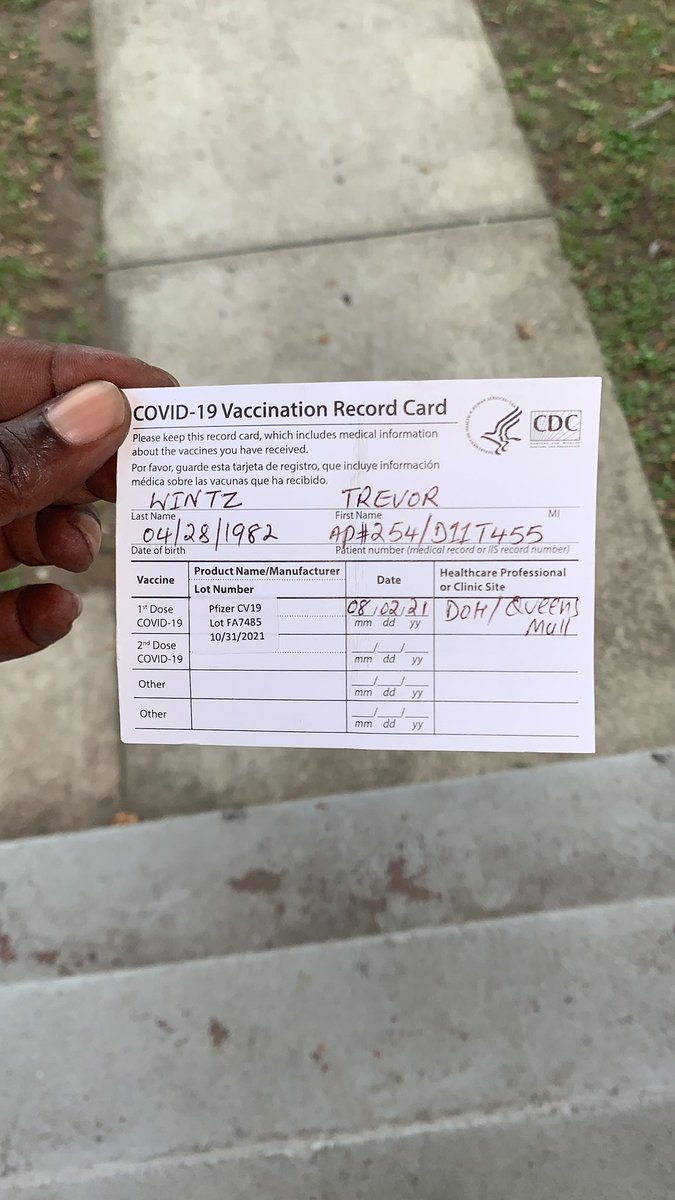 COVID-19 Vaccination Record Card
CDC
Please keep this record card, which includes medical information
about the vaccines you have received.
Por favor, guarde esta tarjeta de registro, que incluye información
médica sobre las vacunas que ha recibido.
WINTZ TREVOR
Last Name First Name MI
04/28/1982 AP#254/D11T455
Date of birth Patient number (medical record or IIS record number)
Vaccine Product Name/Manufacturer Date Healthcare Professional
Lot Number or Clinic Site
1st Dose Pfizer CV19 08/02/21 DOH/Queens
COVID-19 Lot FA7485 mm dd yy Mall
10/31/2021
2nd Dose __/__/__
COVID-19 mm dd yy
Other __/__/__
mm dd yy
Other __/__/__
mm dd yy